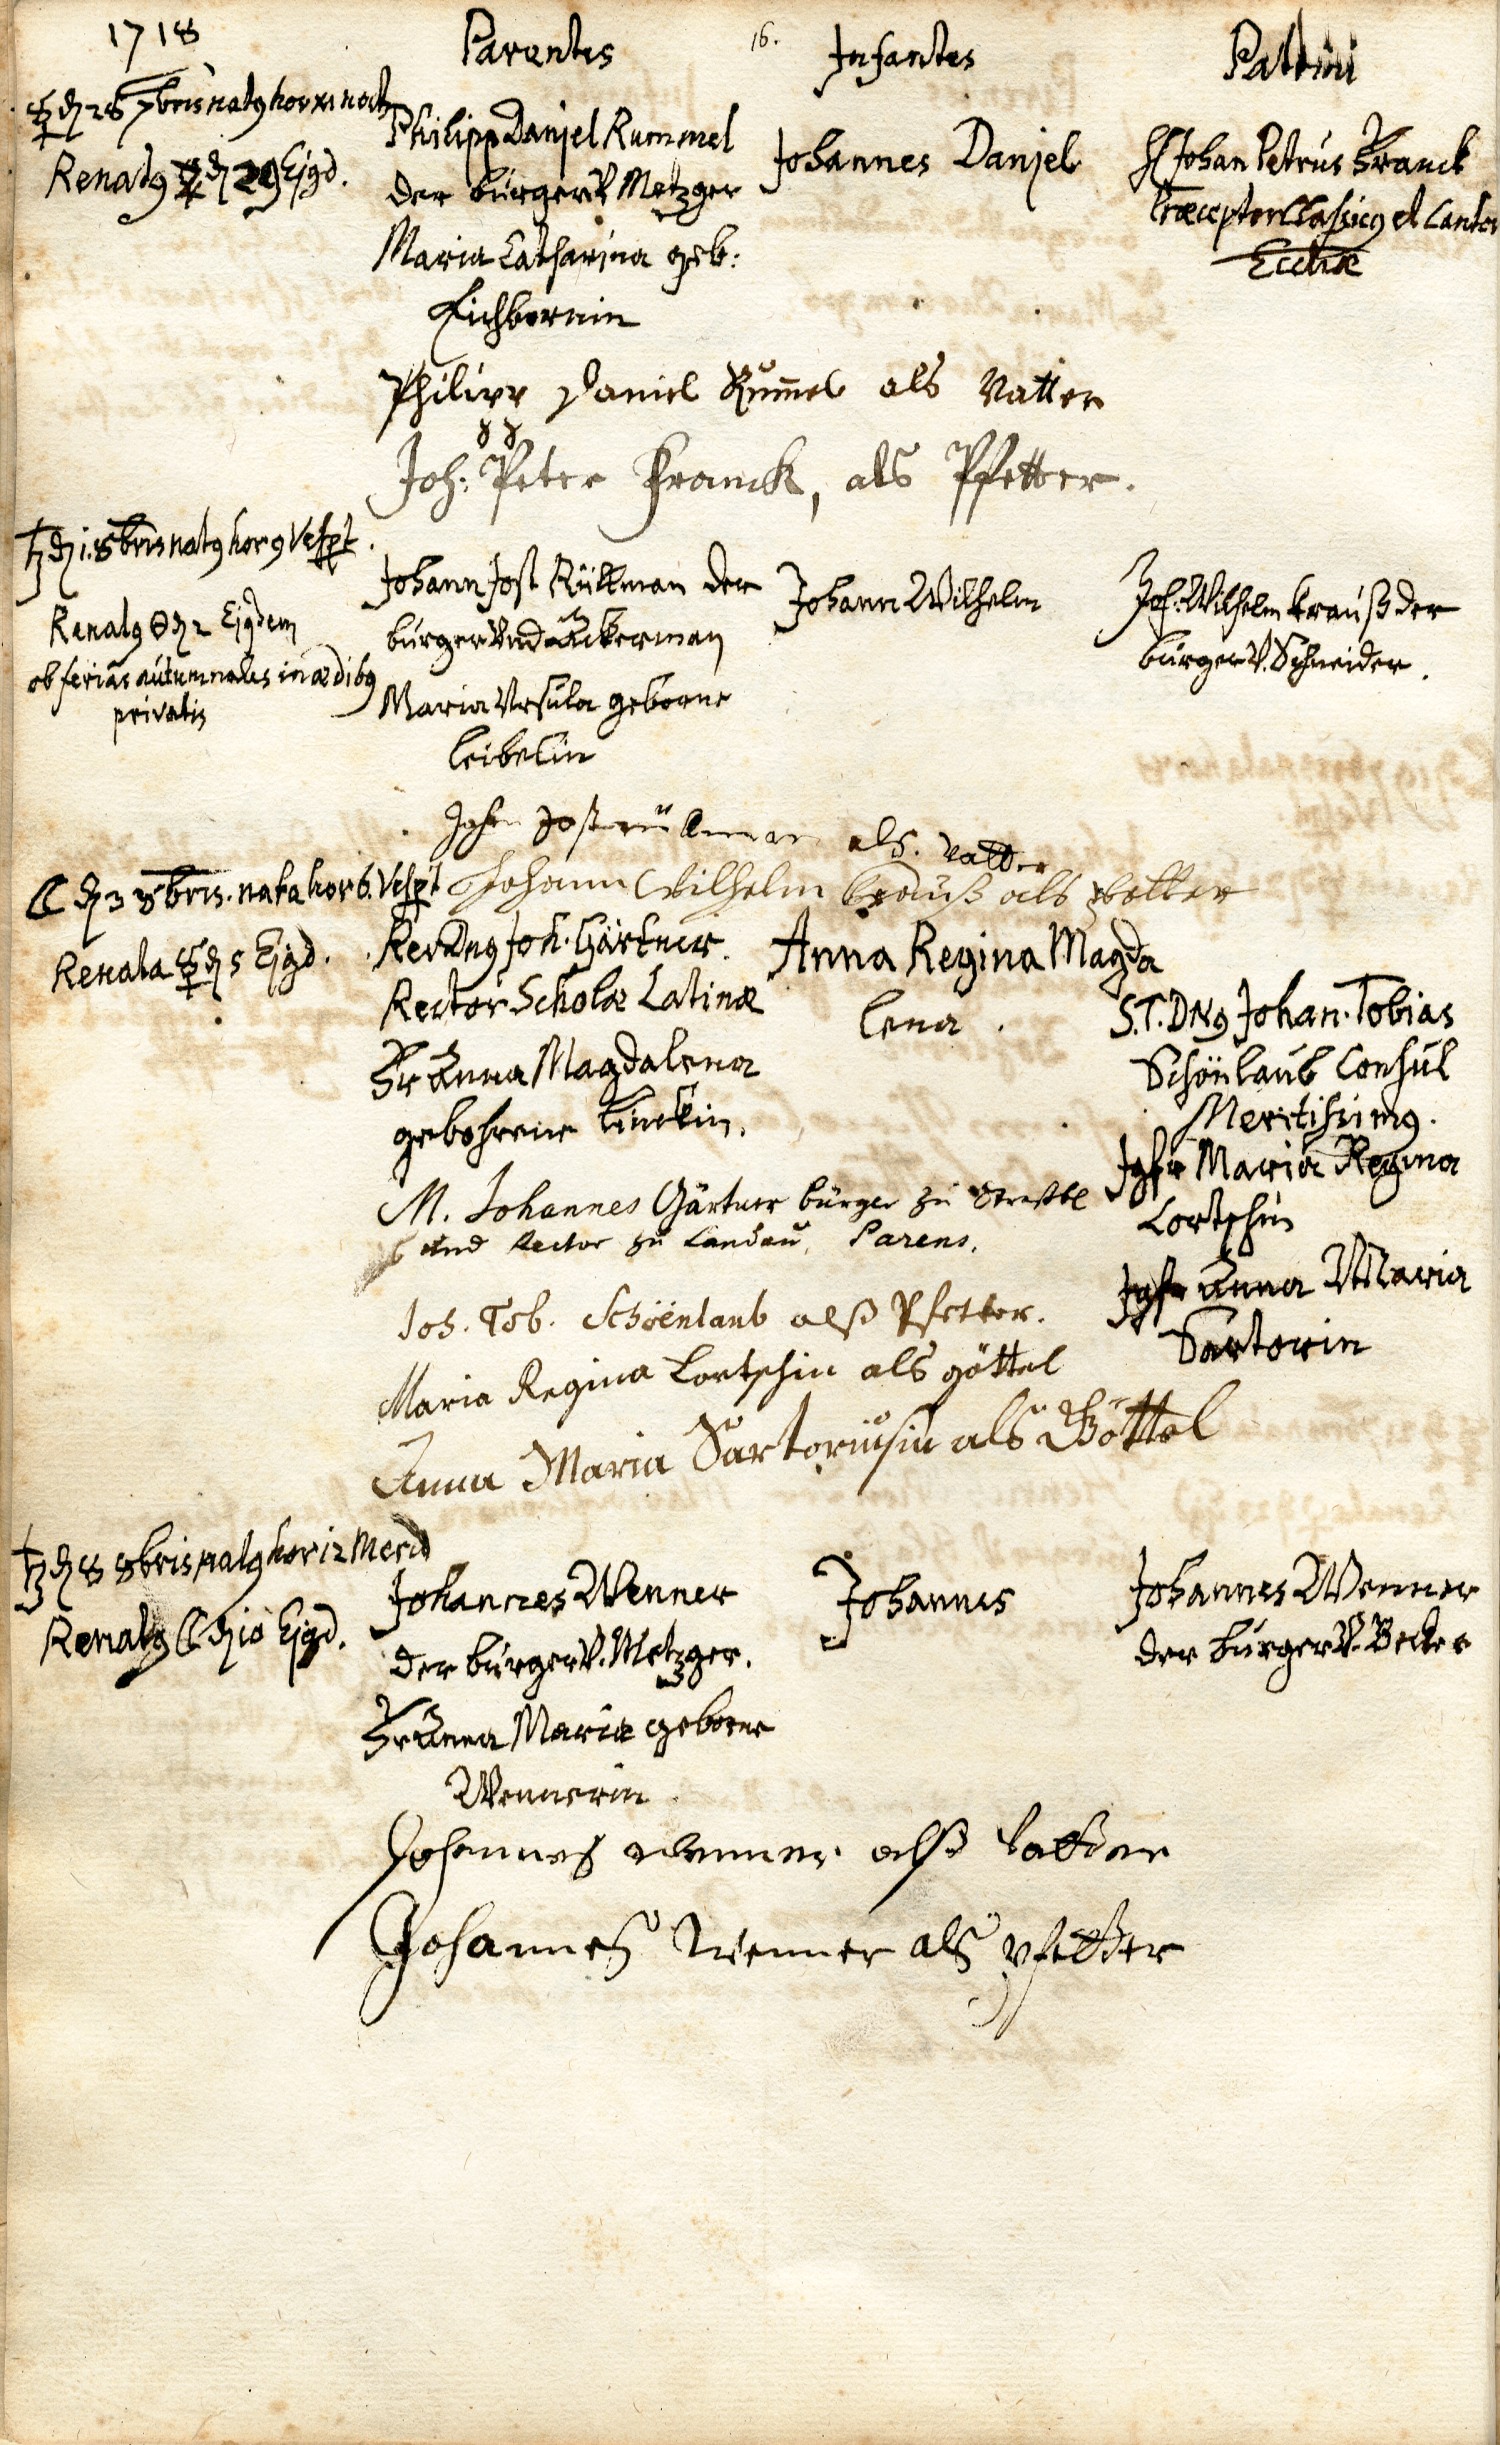 1718
Parentes
16.
Infantes
Patrini
☿ d 28 7bris natq hor XI noct
Renatq ♃ d 29 Ejqd.
Philipp Danjel Rummel
der burger V Metzger
Maria Catharina geb:
Eichbornin
Johannes Danjel
H Johan Petrus Franck
Præceptor Classicq et Cantor
Eccliæ
Philipp Daniel Rum̄el als Vatter
Joh: Peter Franck, als Pfetter.
♄ d 1. 8bris natq hor 9 Vespt.
Renatq ☉ d 2 Ejqdem
ob ferias autumnales in ædibq
privatis
Johann Jost Rüllman der
burger Vnd Ackerman
Maria Vrsula geborne
Leibelin
Johann Wilhelm
Joh: Wilhelm Krauß der
burger V. Schneider.
Johan Jost rüllman als. vatter
Johann Wilhelm Krauß als pfetter
☾ d 3 8bris. nata hor 6. Vespt
Renata ☿ d 5 Ejqd.
Rev Dnq Joh. Gärtner.
Rector Scholæ Latinæ
Fr Anna Magdalena
gebohrene Linckin.
Anna Regina Magda
lena.
S. T. DNq Johan. Tobias
Schönlaub Consul
Meritissimq.
Jgfr Maria Regina
Lortzhin
Jgfr Anna Maria
Sartorin
M. Johannes Gärtner bürger zu Straßb
und Rector zu Landau, Parens.
Joh. Tob. Schöenlaub alß Pfetter.
Maria Regina Lortzhin als göttel
Anna Maria Sartoriusin als Göttel
♄ d 8 8bris natq hor 12 Merid
Renatq ☾ d 10 Ejqd.
Johannes Wenner
der burger V. Metzger.
Fr Anna Maria geborne
Wennerin
Johannes
Johannes Wenner
der burger V. Becker
Johannes wenner alß Vatter
Johannes Wenner als pfetter